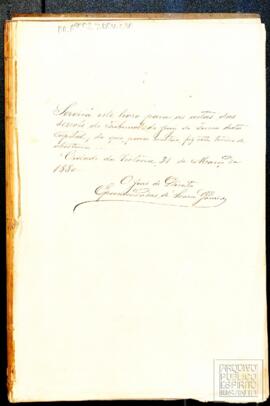 Servirá este livro para as actas das
sessões do Tribunal do Jury da Comca desta
Capital, do que para constar fiz este termo de
abertura.
Cidade da Victoria, 31 de Março de
1880
O Juiz de Direito
de Souza Gomes
ARCHIVO
PUBLICO
ESPIRITO
SANTO